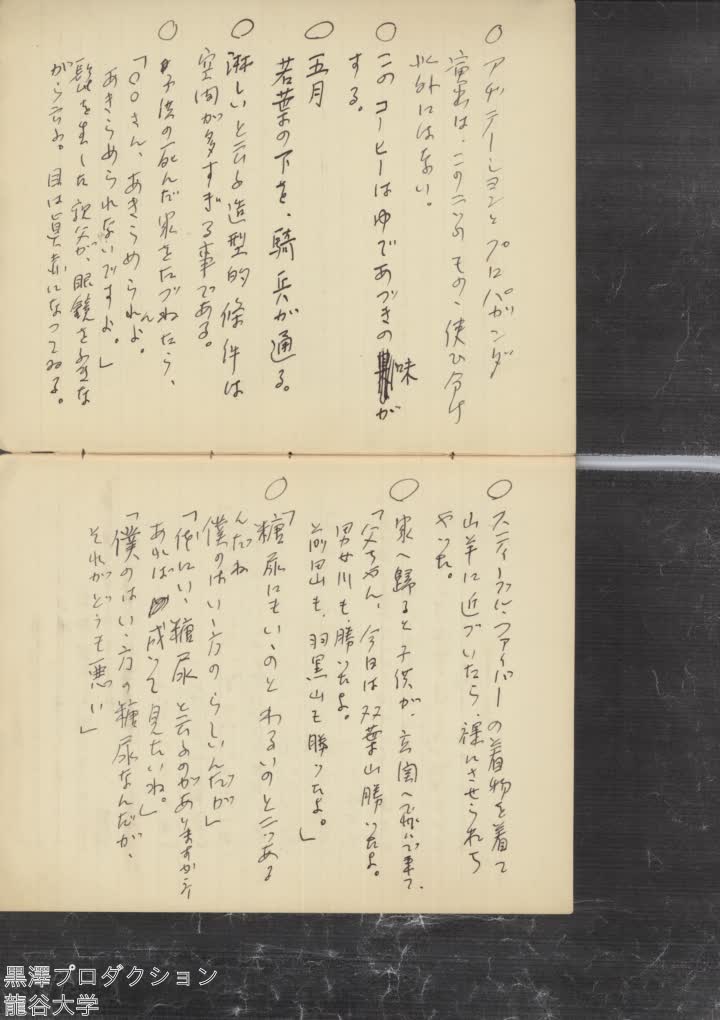 ○ アヂテーションとプロパガンダ
演出は、この二つのもの、使ひ分け
以外にはない。
○ このコーヒーはゆであづきの味が
する。
○ 五月
若葉の下を、騎兵が通る。
○ 淋しいと云ふ造型的條件は
空間が多すぎる事である。
○ 子供の死んだ家をたづねたら、
「○○さん、あきらめられんよ。
あきらめられないですよ。」
髭を生した親父が、眼鏡をふきな
がら云ふ。目は真赤になつてゐる。
○ ステイープル・ファイバーの着物を着て
山羊に近づいたら、裸にさせられち
やつた。
○ 家へ歸ると子供が、玄関へ飛んで来て、
「父ちやん、今日は双葉山勝つたよ。
男女川も勝つたよ。
前田山も、羽黒山も勝つたよ。」
○ 「糖尿にもいゝのとわるいのと二つある
んだね
僕のはいゝ方のらしいんだが」
「へい、糖尿と云ふのがありますか
あれば成つて見たいね。」
「僕のはいゝ方の糖尿なんだが、
それがどうも悪い」
黒澤プロダクション
龍谷大学